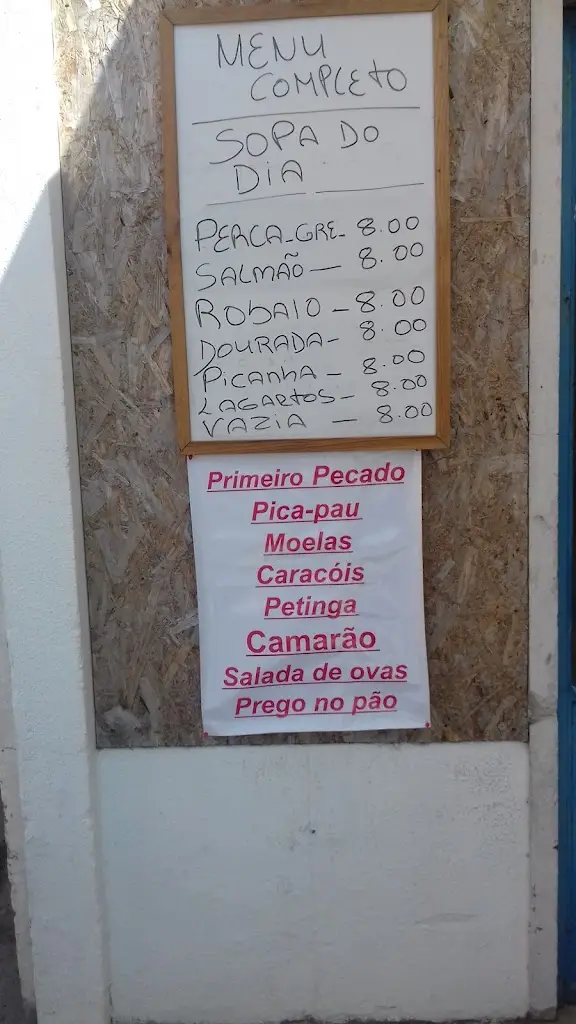 MENU
COMPLETO
SOPA DO
DIA
PERCA-GRE- 8.00
SALMÃO - 8.00
ROBALO - 8.00
DOURADA - 8.00
PICANHA - 8.00
LAGARTOS - 8.00
VAZIA - 8.00
Primeiro Pecado
Pica-pau
Moelas
Caracóis
Petinga
Camarão
Salada de ovas
Prego no pão